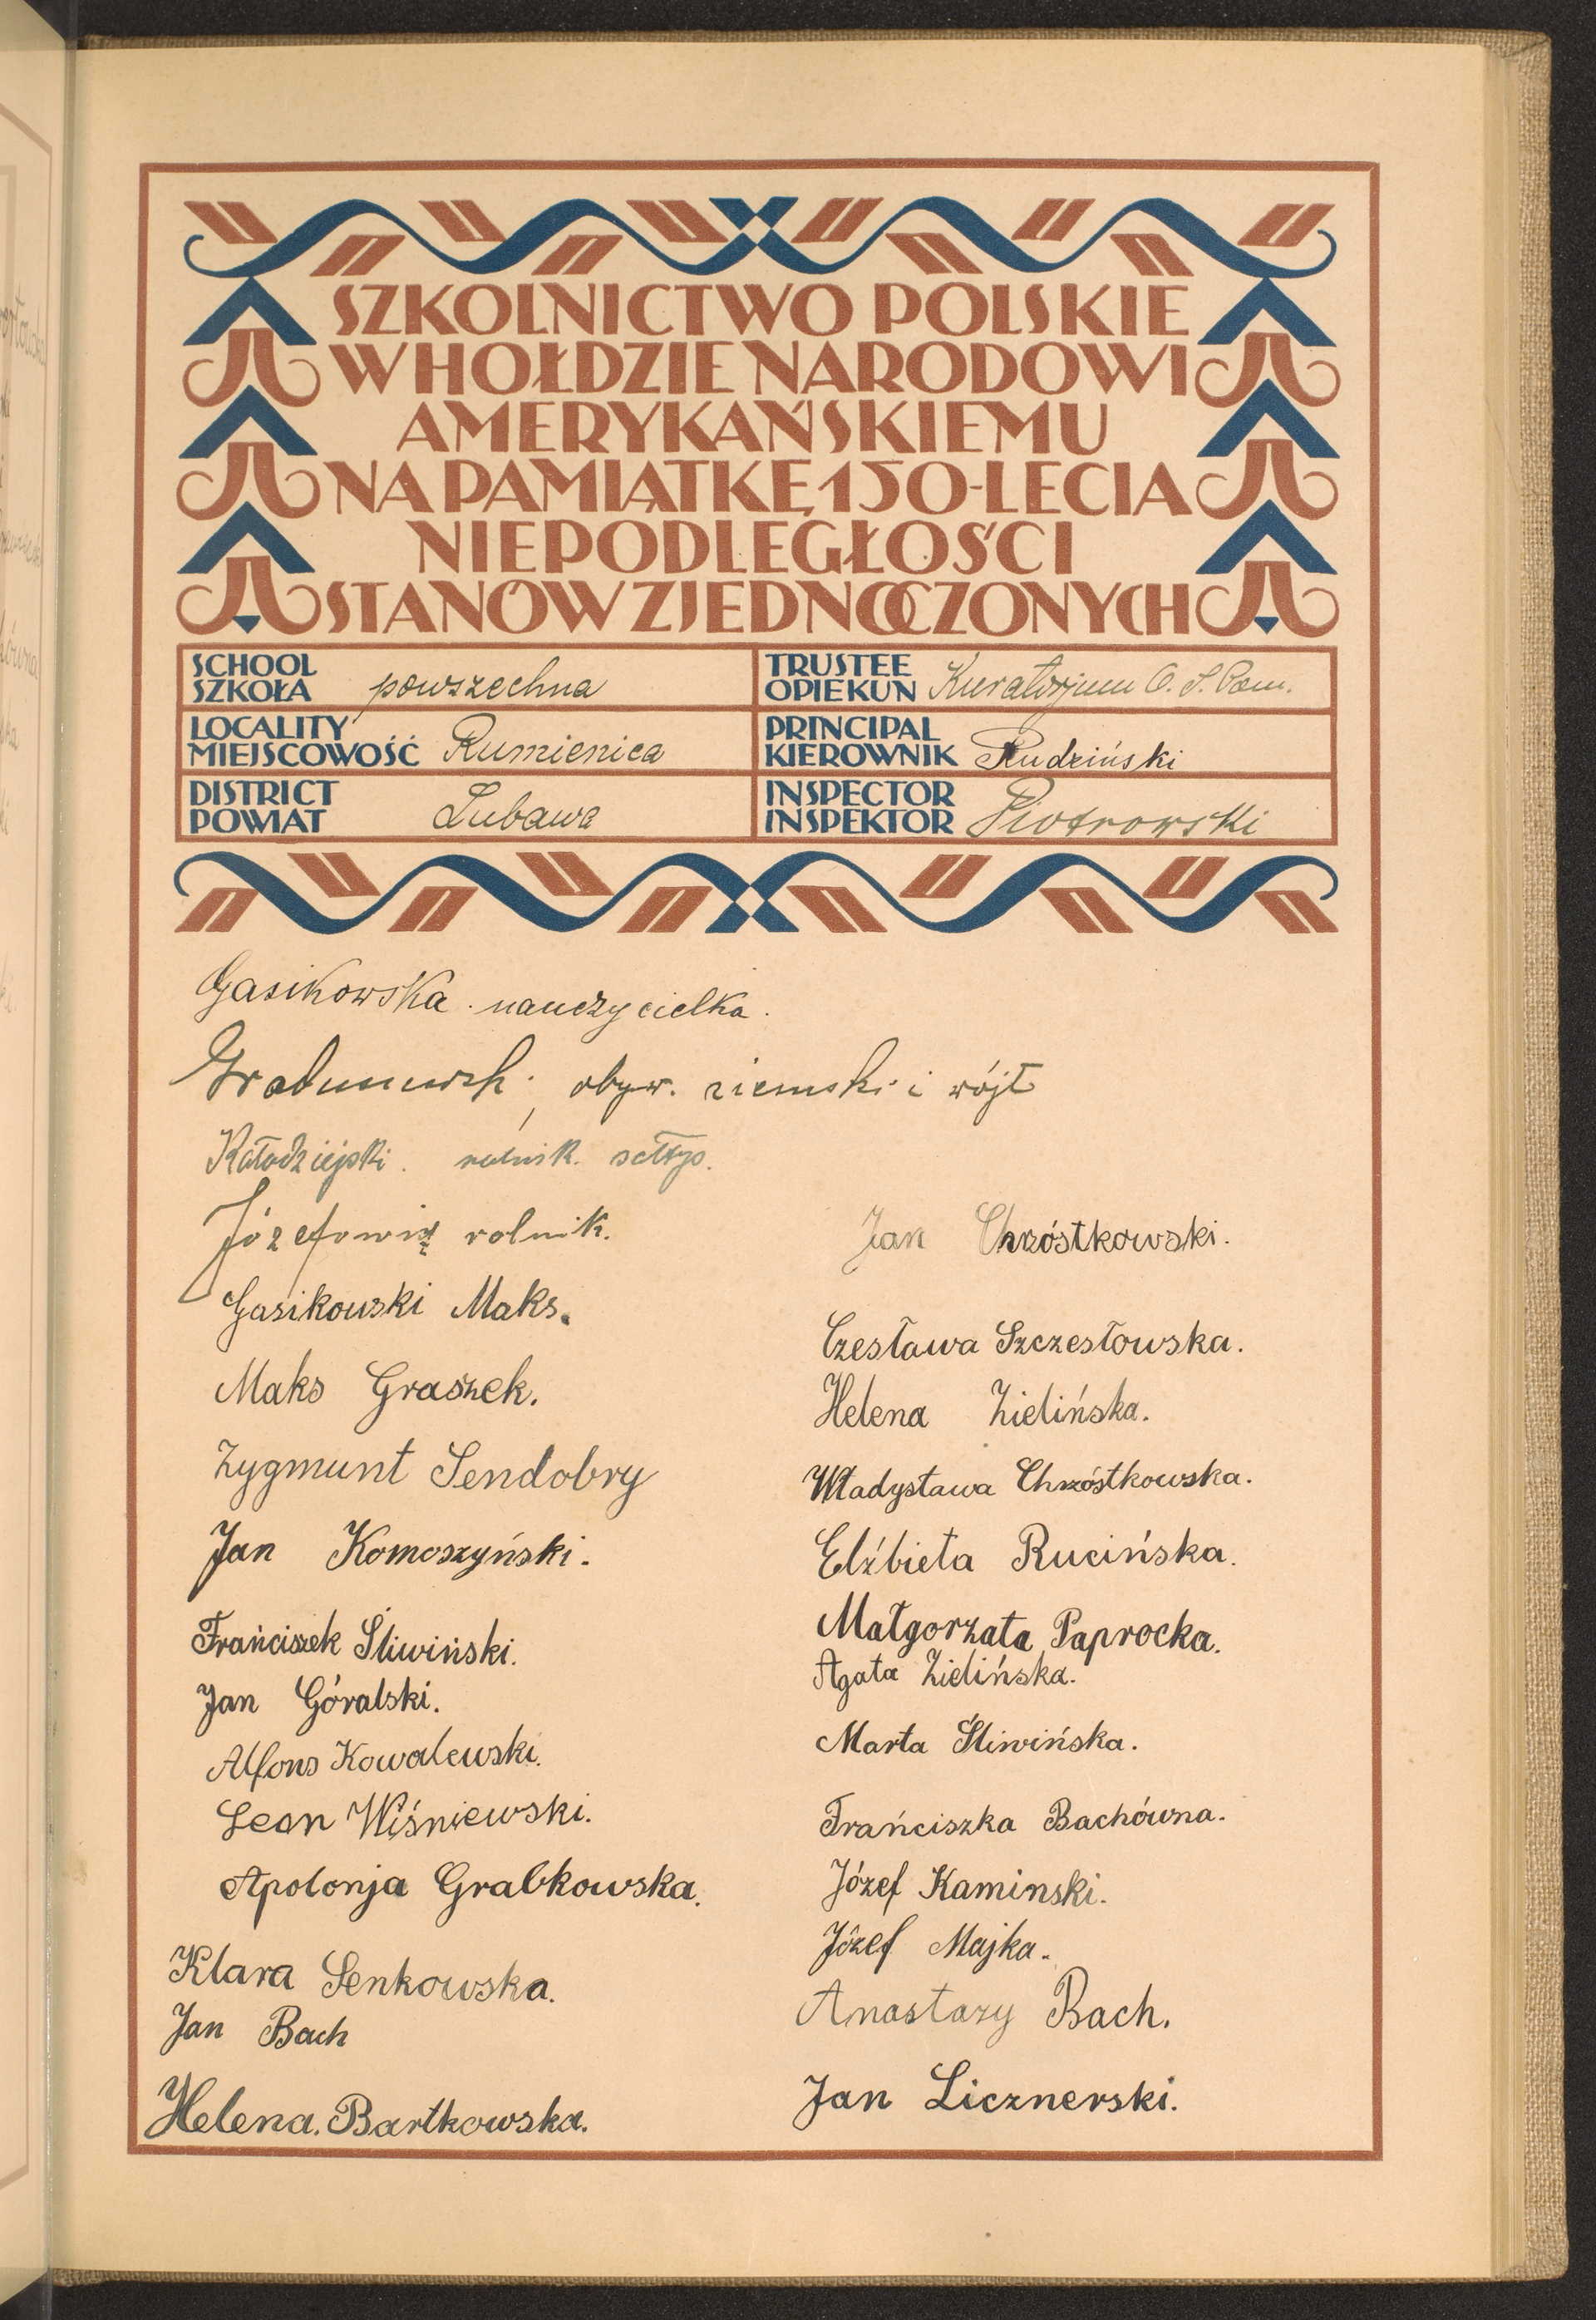 SZKOLNICTWO POLSKIE
W HOŁDZIE NARODOWI
AMERYKAŃSKIEMU
NA PAMIĄTKĘ 150-LECIA
NIEPODLEGŁOŚCI
STANÓW ZJEDNOCZONYCH
SCHOOL
SZKOŁA powszechna
TRUSTEE
OPIEKUN Kuratorjum O. S. Pom.
LOCALITY
MIEJSCOWOŚĆ Rumienica
PRINCIPAL
KIEROWNIK Rudziński
DISTRICT
POWIAT Lubawa
INSPECTOR
INSPEKTOR Piotrowski
Gasikowska. nauczycielka.
obyw. ziemski i wójt
Kołodziejski. rolnik. sołtys.
rolnik.
Gasikowski Maks.
Maks Graszek.
Zygmunt Sendobry
Jan Komoszyński.
Frańciszek Śliwiński.
Jan Góralski.
Alfons Kowalewski.
Leon Wiśniewski.
Apolonja Grabkowska.
Klara Senkowska.
Jan Bach
Helena. Bartkowska.
Jan Chrzóstkowski.
Czesława Szczesłowska.
Helena Zielińska.
Władysława Chrzóstkowska.
Elżbieta Rucińska.
Małgorzata Paprocka.
Agata Zielińska.
Marta Śliwińska.
Frańciszka Bachówna.
Józef Kaminski.
Józef Majka.
Anastazy Bach.
Jan Licznerski.